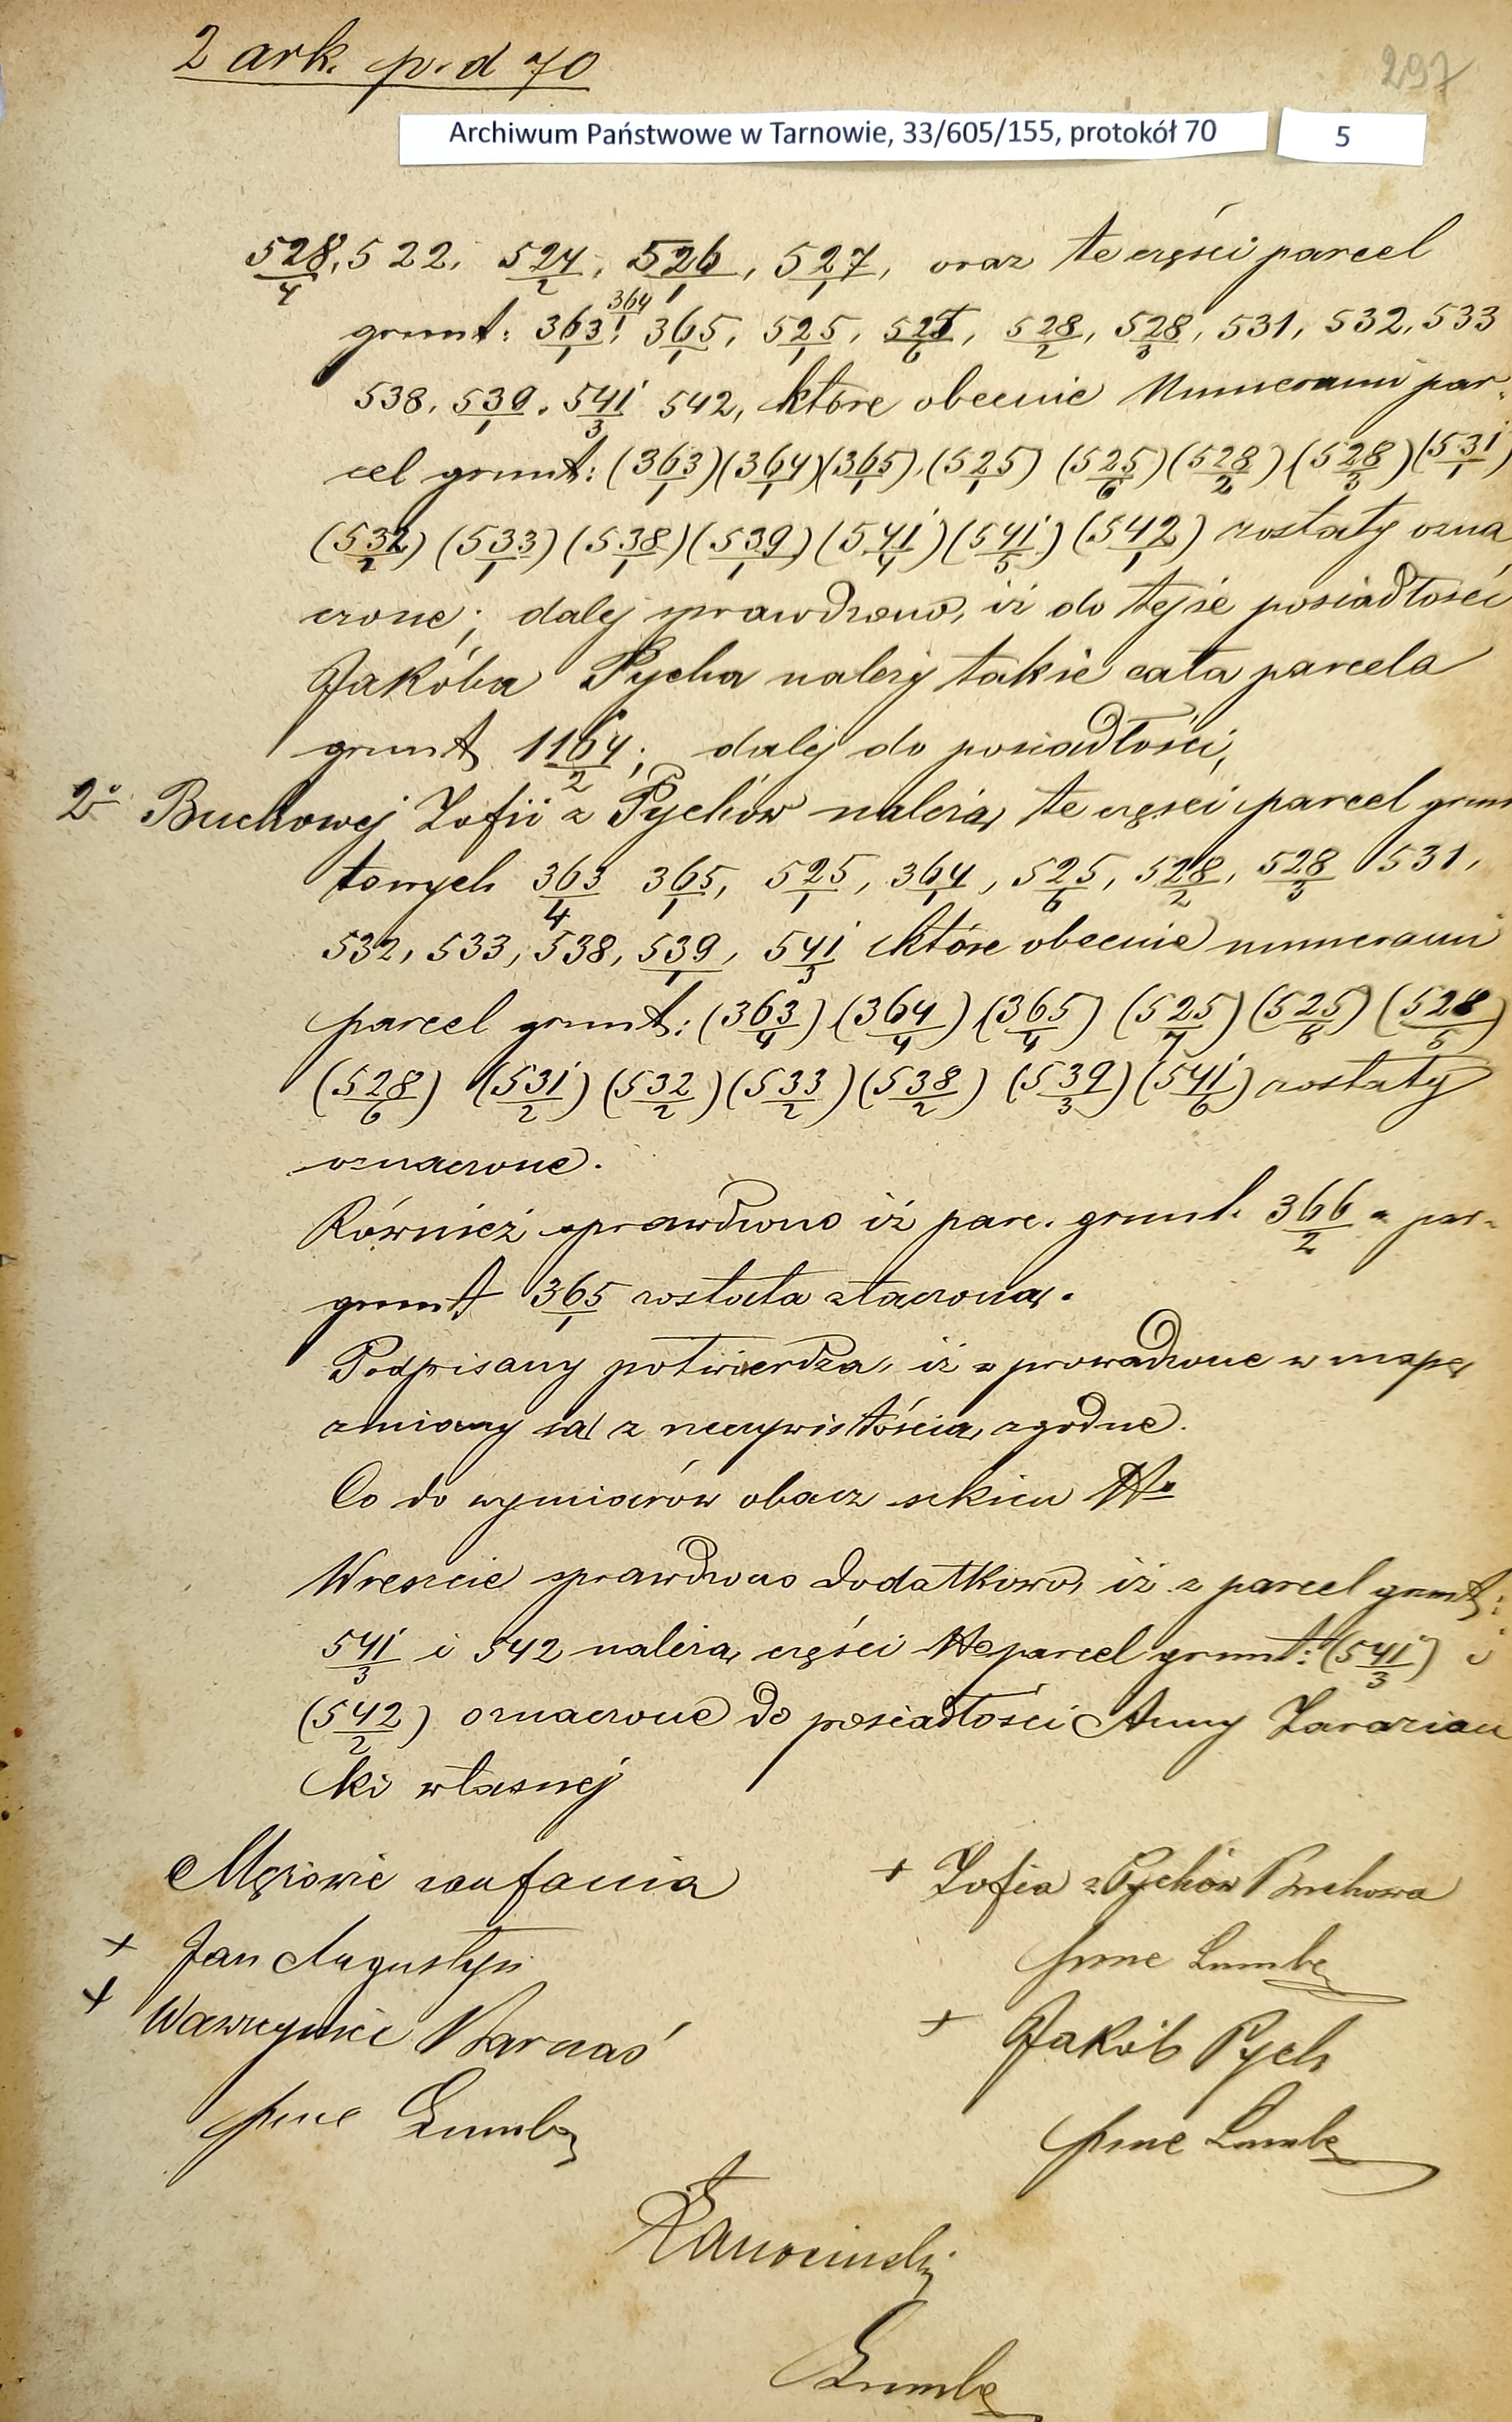 2 ark. p. d 70
297
Archiwum Państwowe w Tarnowie, 33/605/155, protokół 70
5
528/4, 522, 524/2, 526/1, 527/1, oraz te części parcel
grunt: 363/1, 364/1 365/1, 525/1, 525/6, 528/2, 528/3, 531, 532, 533
538, 539/1, 541/3 542, które obecnie Numerami par-
cel grunt: (363/1) (364/1) (365/1), (525/1) (525/6) (528/2) (528/3) (531/1)
(532/1) (533/1) (538/1) (539/1) (541/4) (541/5) (542/1) zostały ozna
czone; dalej sprawdzono, iż do tejże posiadłości
Jakóba Pycha należy także cała parcela
grunt 1164/2; dalej do posiadłości,
2° Buchowej Zofii z Pychów należą te części parcel grun
towych 363/4 365/1, 525/1, 364/1, 525/6, 528/2, 528/3 531,
532, 533, 538, 539/1, 541/3 które obecnie numerami
parcel grunt: (363/4) (364/4) (365/4) (525/7) (525/8) (528/5)
(528/6) (531/2) (532/2) (533/2) (538/2) (539/3) (541/6) zostały
oznaczone.
Również sprawdzono iż parc. grunt. 366/2 z par-
grunt 365/1 została złączoną.
Podpisany potwierdza, iż wprowadzone w mapę
zmiany są z rzeczywistością zgodne.
Co do wymiarów obacz szkicu No
Wreszcie sprawdzono dodatkowo, iż z parcel grunt:
541/3 i 542 należą części parcel grunt: (541/3) i
(542/2) oznaczone do posiadłości Anny Zaraziań
ki własnej
Mężowie zaufania
+ Zofia z Pychów Buchowa
+ Jan Augustyn
+ Wawrzyniec Barnaś
+ Jakób Pych